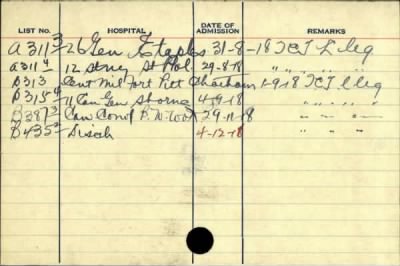 LIST NO. HOSPITAL DATE OF ADMISSION REMARKS
A311³ 26 Gen Etaples 31-8-18 TCT L Leg
A311⁴ 12 Stny St Pol 29-8-18 " " "
B313 Cent Mil Fort Pitt Chatham 1-9-18 TCT L Leg
B315⁴ 11 Can Gen Shorne 4-9-18 " " "
B387³ Can Conv P. W. Wood 29-11-18 " " "
B435² Disch 4-12-18